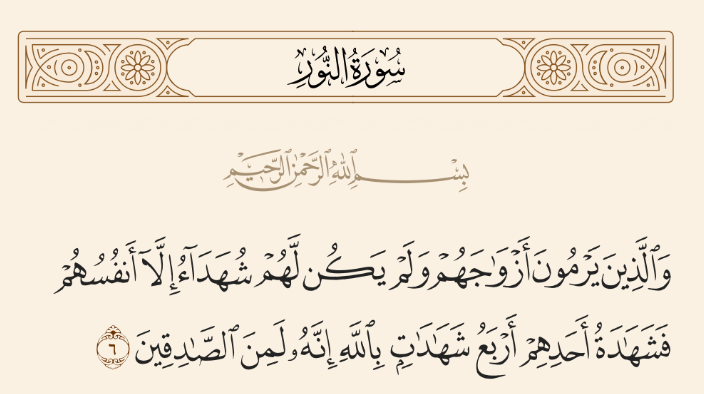 سُورَةُ النُّورِ
بِسْمِ ٱللَّهِ ٱلرَّحْمَٰنِ ٱلرَّحِيمِ
وَٱلَّذِينَ يَرْمُونَ أَزْوَٰجَهُمْ وَلَمْ يَكُن لَّهُمْ شُهَدَآءُ إِلَّآ أَنفُسُهُمْ
فَشَهَٰدَةُ أَحَدِهِمْ أَرْبَعُ شَهَٰدَٰتٍۭ بِٱللَّهِ إِنَّهُۥ لَمِنَ ٱلصَّٰدِقِينَ ٦